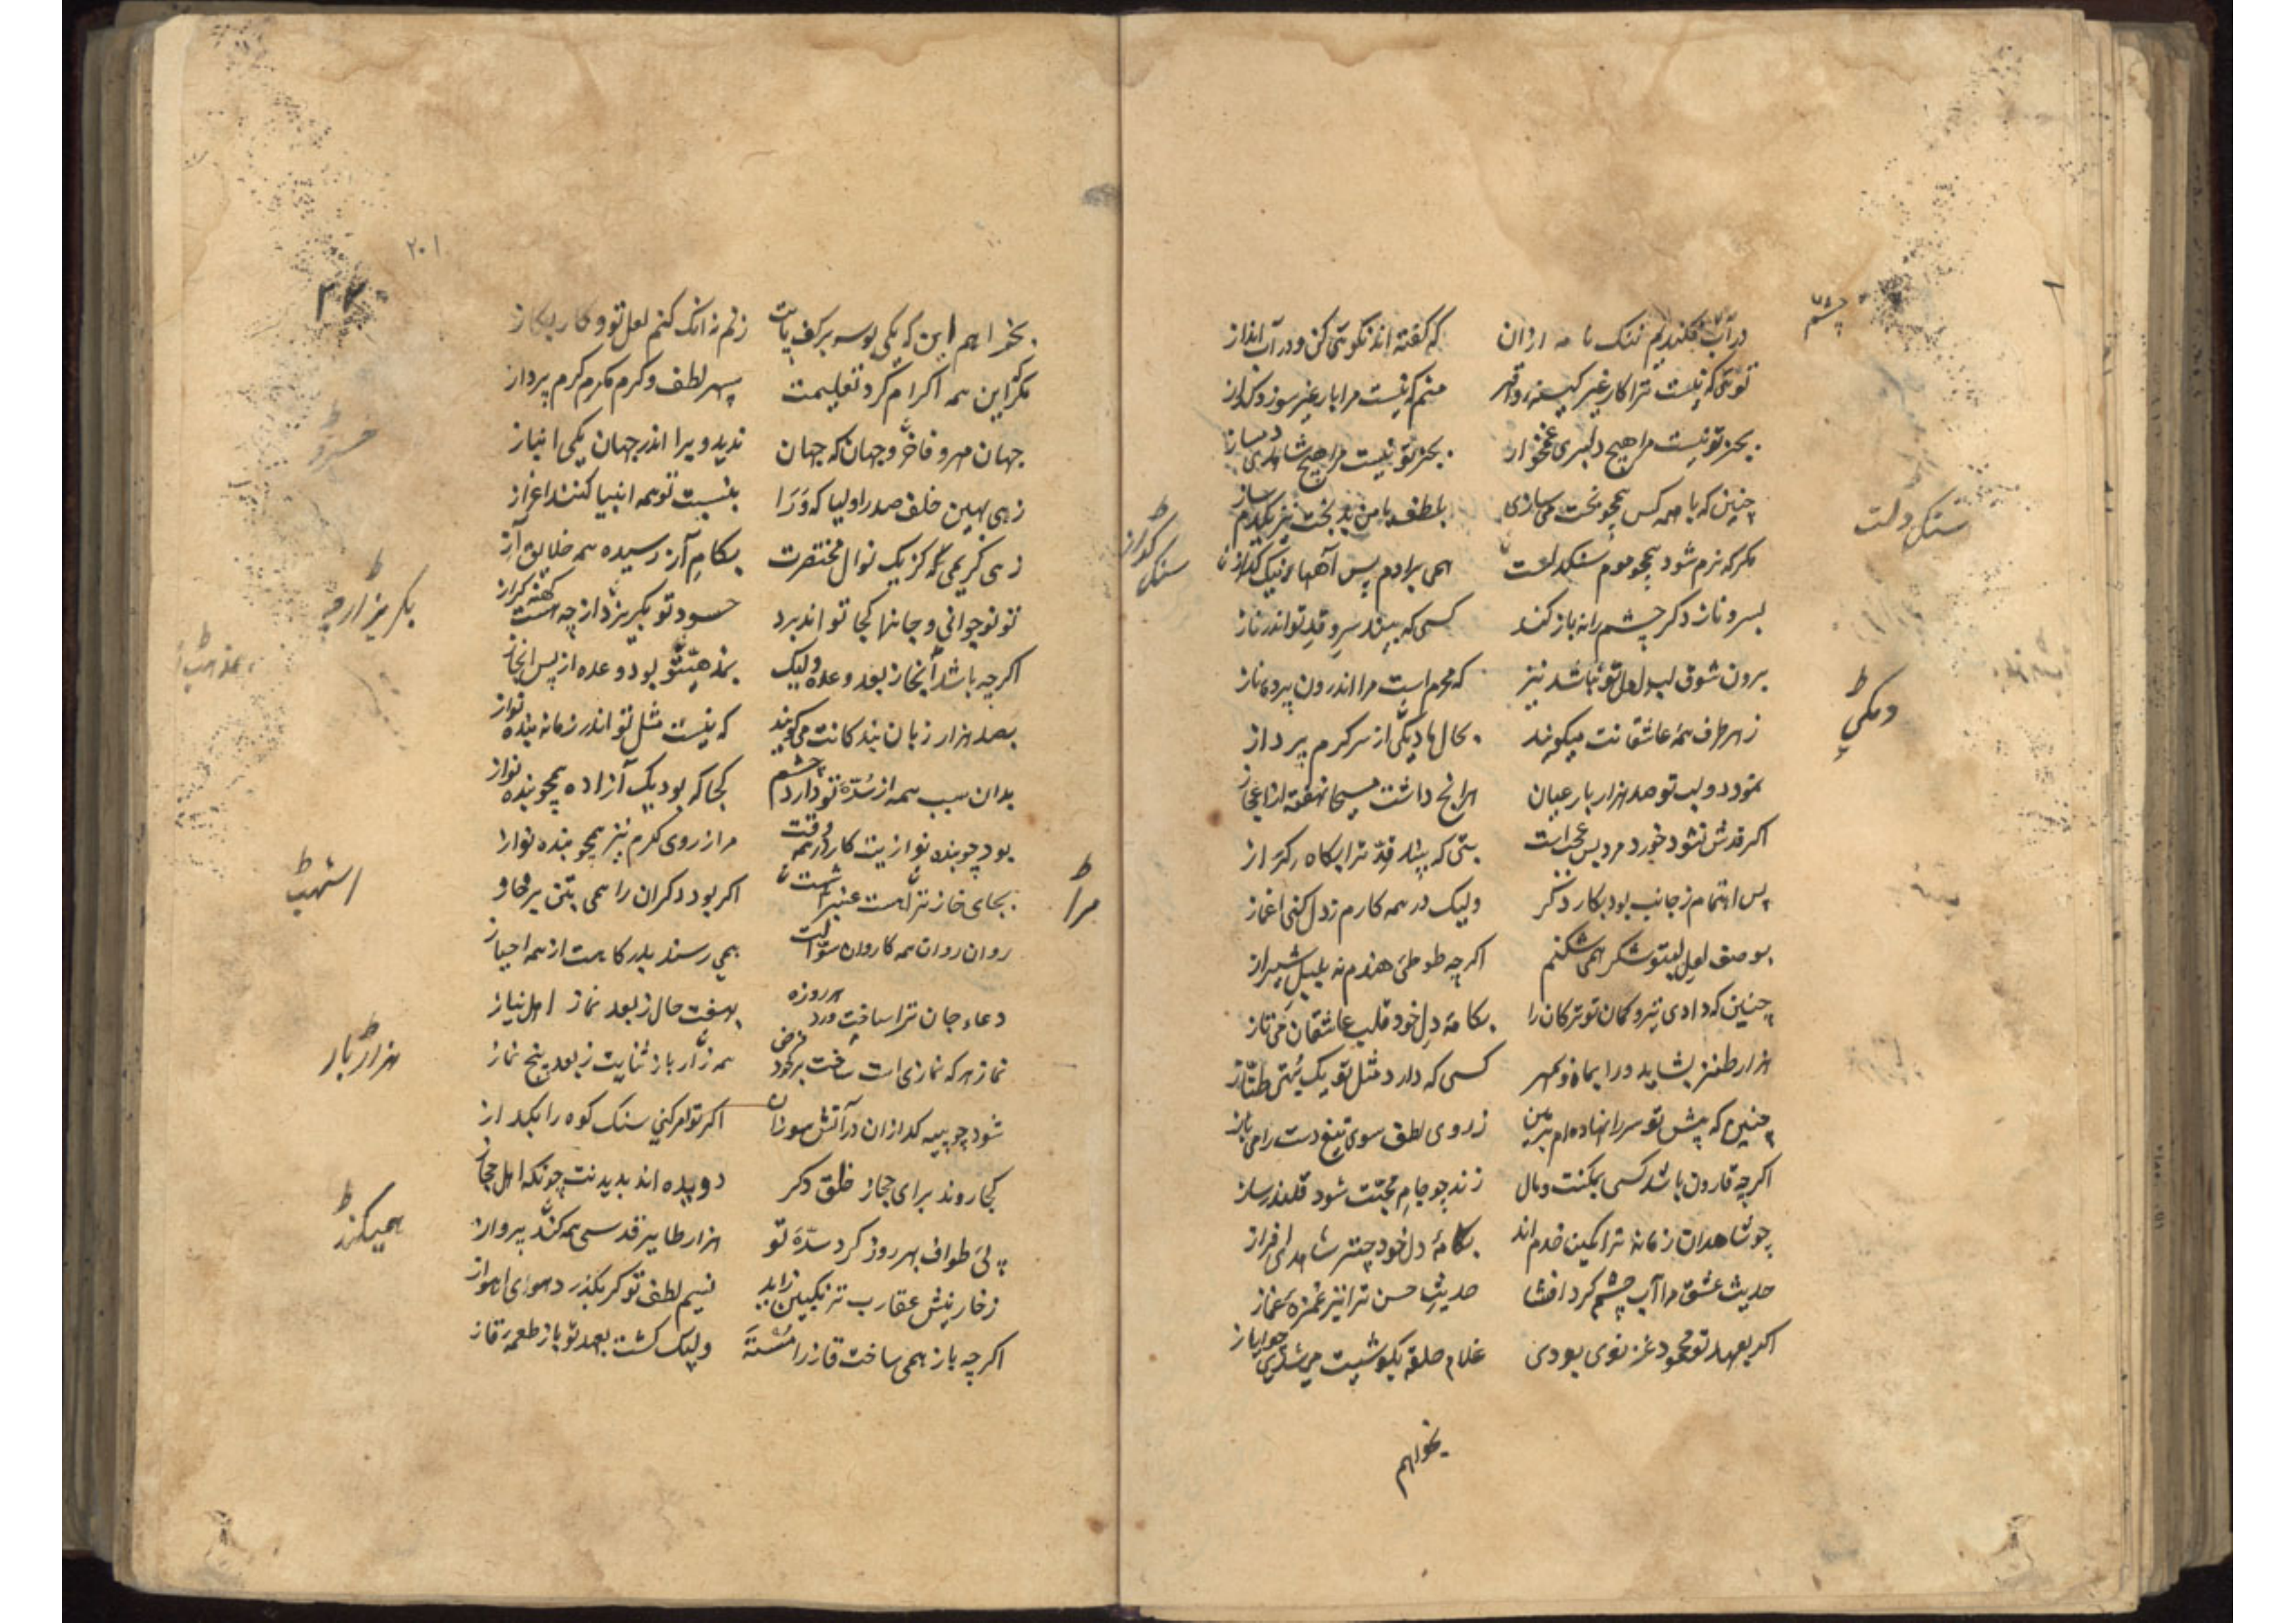 چشم
در آب فکندیم نیک نامه ازان که گفته اند نکویی کن و در آب انداز
تویی که نیست ترا کار غیر کینه و قهر منم که نیست مرا یار غیر سوز و گداز
بجز تو نیست مرا هیچ دلبری غمخوار بجز تو نیست مرا هیچ شاهدی دمساز
چنین که با همه کس همچو بخت می سازی بلطف با من بدبخت نیز یکدم ساز
سنک دلت
مکر که نرم شود همچو موم سنکدلت همی برارم پس آهها
سنک کداز
بسرو ناز دکر چشم را نه باز کند کسی که بیند سرو قد تو اندر ناز
برون شوق لب لعل تو نباشد نیز که محرم است مرا اندرون پرده ناز
دیکی
ز هر طرف همه عاشقانت میکویند بحال ما دیکی از سر کرم پرداز
نمود دو لب تو صد هزار بار عیان هرانچ داشت مسیحا نهفته از اعجاز
اکر قدش نشود خورد مرد بس عجبست بتی که بیند قد ترا بکاه
پس اهتمام ز جانب بود بکار دکر ولیک در همه کارم ز دل کنی اغماز
بوصف لعل لبتو شکر همی شکنم اکر چه طوطی هندم نه بلبل شیراز
چنین که دادی تیر و کمان تو ترکان را بکامه دل خود قلب عاشقان می تاز
هزار طنز بشاید ورا بماه و بمهر کسی که دارد مثل تو یک بتی طناز
چنین که پیش تو سر را نهاده ام بزمین ز روی لطف سوی تیغ دست را می یاز
اکر چه قارون باشد کسی بمکنت و مال زند چو جام محبت شود قلندر ساز
چو شاهدان زمانه ترا کمین خدم اند بکامه دل خود چتر شاهدی افراز
حدیث عشق مرا آب چشم کرد افشا حدیث حسن ترا نیز غمزه غماز
اکر بعهد تو محمود غزنوی بودی غلام حلقه بکوشیت می شدی چو ایاز
بخواهم
۲۰۱
۲۲۰
بخواهم این که یکی بوسه بر کف پایت زنم نه انک کنم لعل تو و کاز بکاز
مکر این همه اکرام کرد تعلیمت سپهر لطف و کرم مکرم کرم پرداز
جهان مهر و فاخر و جهان که جهان ندید ویرا اندر جهان یکی انباز
زهی بهین خلف صدر اولیا که ورا بنسبت تو همه انبیا کنند اعزاز
زهی کریمی که کز یک نوال مختصرت بکام آز رسیده همه خلایق آز
تو نوجوانی و جانها کجا تو اند برد حسود تو بکریزد ار چه هست کهنه کراز
بکریزد ارچه
اکر چه باشد انجاز بعد وعده ولیک بمذهب تو بود وعده از پس انجاز
بمذهب
بصد هزار زبان بندکانت می کویند که نیست مثل تو اندر زمانه بنده نواز
بدان سبب همه از سده تو دارد چشم کجا که بود یک آزاده همچو بنده نواز
بود چو بنده نوازیت کار در همه وقت مرا ز روی کرم نیز همچو بنده نواز
مرا
اشهب
روان روان همه کاروان سوالت همی رسند بدرکاهت از همه احیاز
دعاء جان ترا ساخت ورد هر روزه بهفت حال ز بعد نماز اهل نیاز
نماز هر که نمازی است ساخت بر خود فرض همه هزار بار ثنایت ز بعد پنج نماز
هزار بار
شود چو پیه کدازان در آتش سوزان اکر تو امر کنی سنک کوه را بکداز
کجا روند برای حجاز خلق دکر دویده اند بدیدنت چونکه اهل حجاز
پی طواف بهر روز کرد سده تو هزار طایر قدسی همه کند پرواز
همیکند
ز خار نیش عقارب ترنکبین زاید نسیم لطف تو کر بکذرد هوای اهواز
اکر چه باز همی ساخت قاز را مسته ولیک کشت بعهد تو باز طعمه قاز